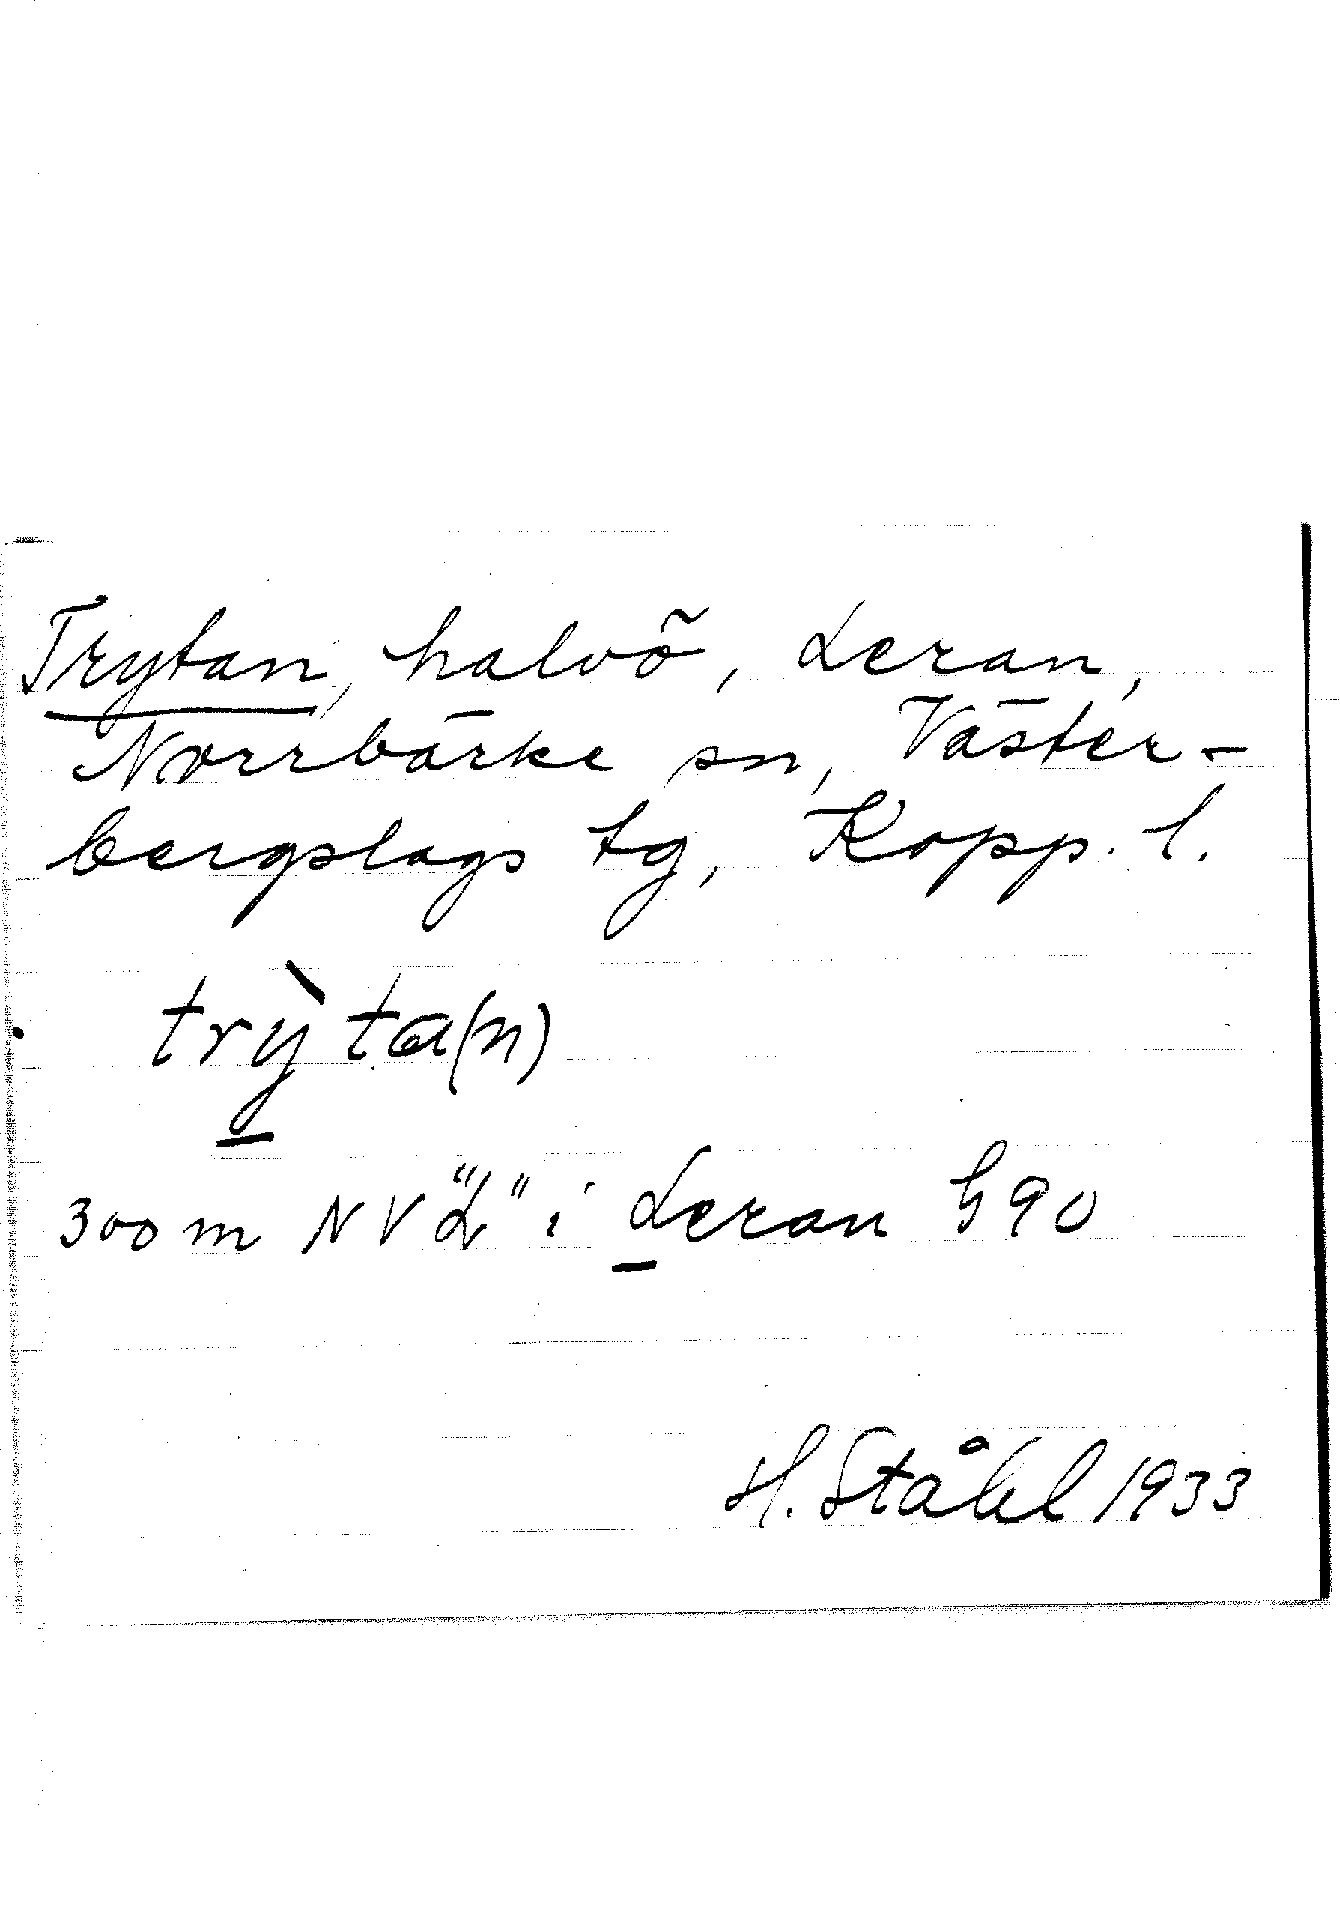 Trytan, halvö, Leran,
Norrbärke sn, Väster-
bergslags tg, Kopp. l.
trỳta(n)
300 m NV "L" i Leran h90
H. Ståhl 1933